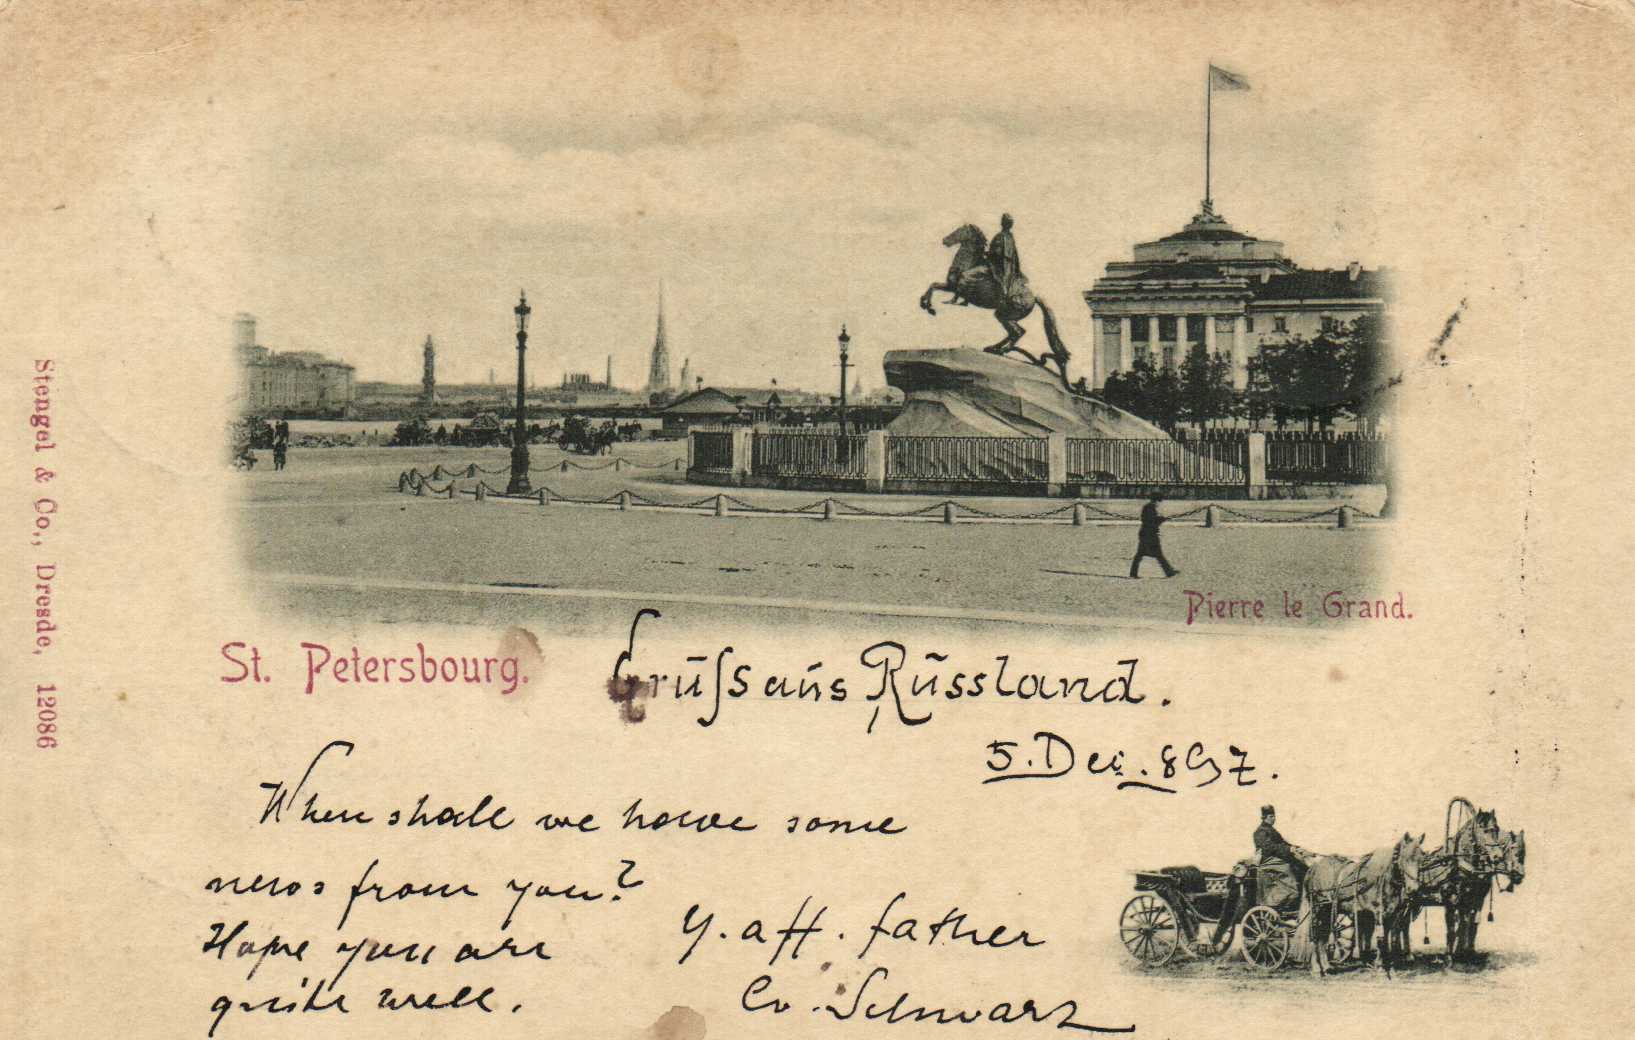 Stengel & Co., Dresde, 12086
Pierre le Grand.
St. Petersbourg.
Gruſs aus Russland.
5. Dec. 897.
When shall we have some
news from you?
Hope you are
quite well.
Y. aff. father
Schwarz